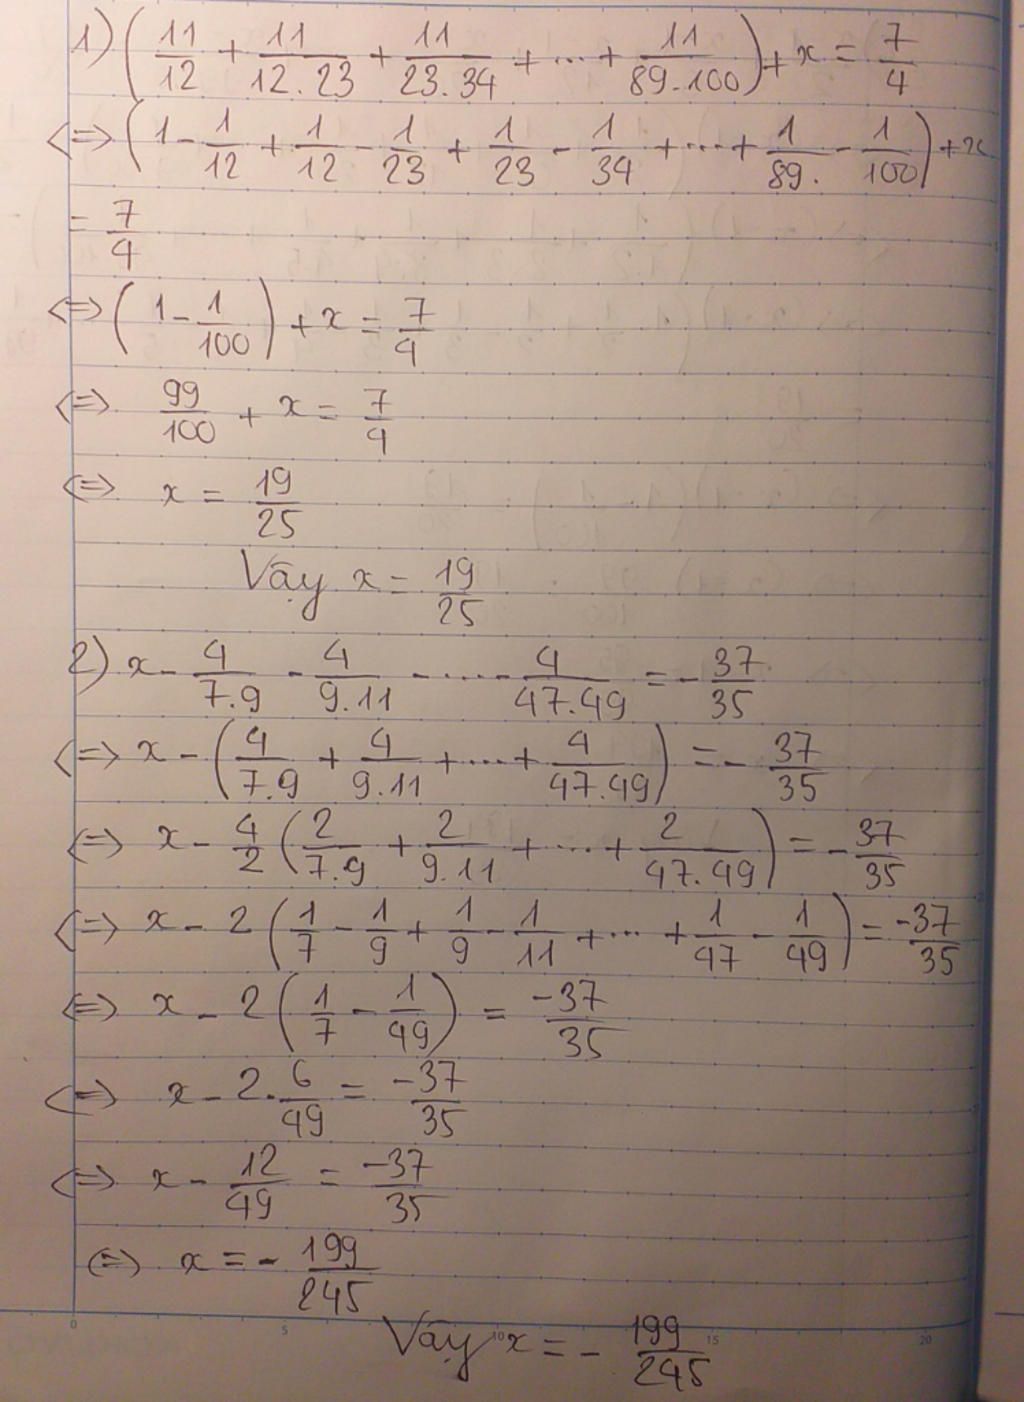 1) (11/12 + 11/12.23 + 11/23.34 + ... + 11/89.100) + x = 7/4
<=> (1 - 1/12 + 1/12 - 1/23 + 1/23 - 1/34 + ... + 1/89. - 1/100) + x
= 7/4
<=> (1 - 1/100) + x = 7/4
<=> 99/100 + x = 7/4
<=> x = 19/25
Vậy x = 19/25
2) x - 4/7.9 - 4/9.11 - ... - 4/47.49 = - 37/35
<=> x - (4/7.9 + 4/9.11 + ... + 4/47.49) = - 37/35
<=> x - 4/2 (2/7.9 + 2/9.11 + ... + 2/47.49) = - 37/35
<=> x - 2 (1/7 - 1/9 + 1/9 - 1/11 + ... + 1/47 - 1/49) = -37/35
<=> x - 2 (1/7 - 1/49) = -37/35
<=> x - 2. 6/49 = -37/35
<=> x - 12/49 = -37/35
<=> x = - 199/245
0 5 10 15 20
Vậy x = - 199/245